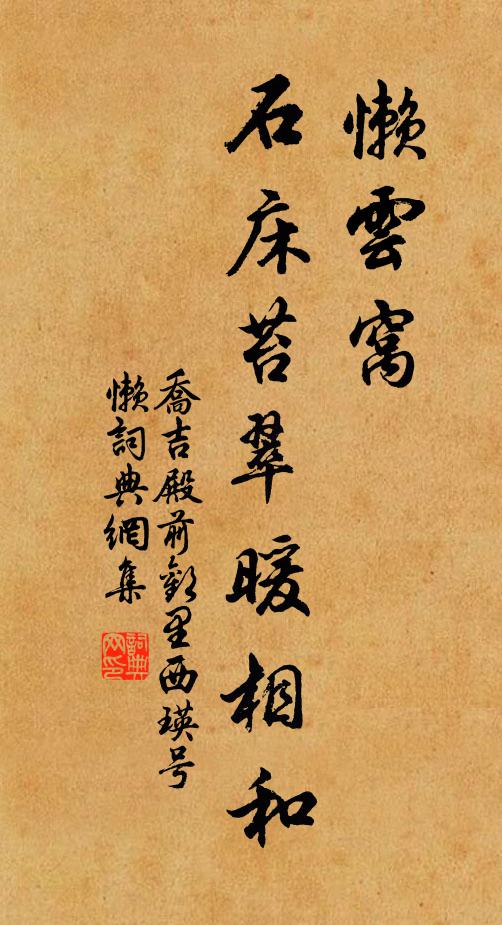 懶雲窩
石床苔翠暖相和
喬吉殿前歡里西瑛号
懶詞典網集
詞典
网印